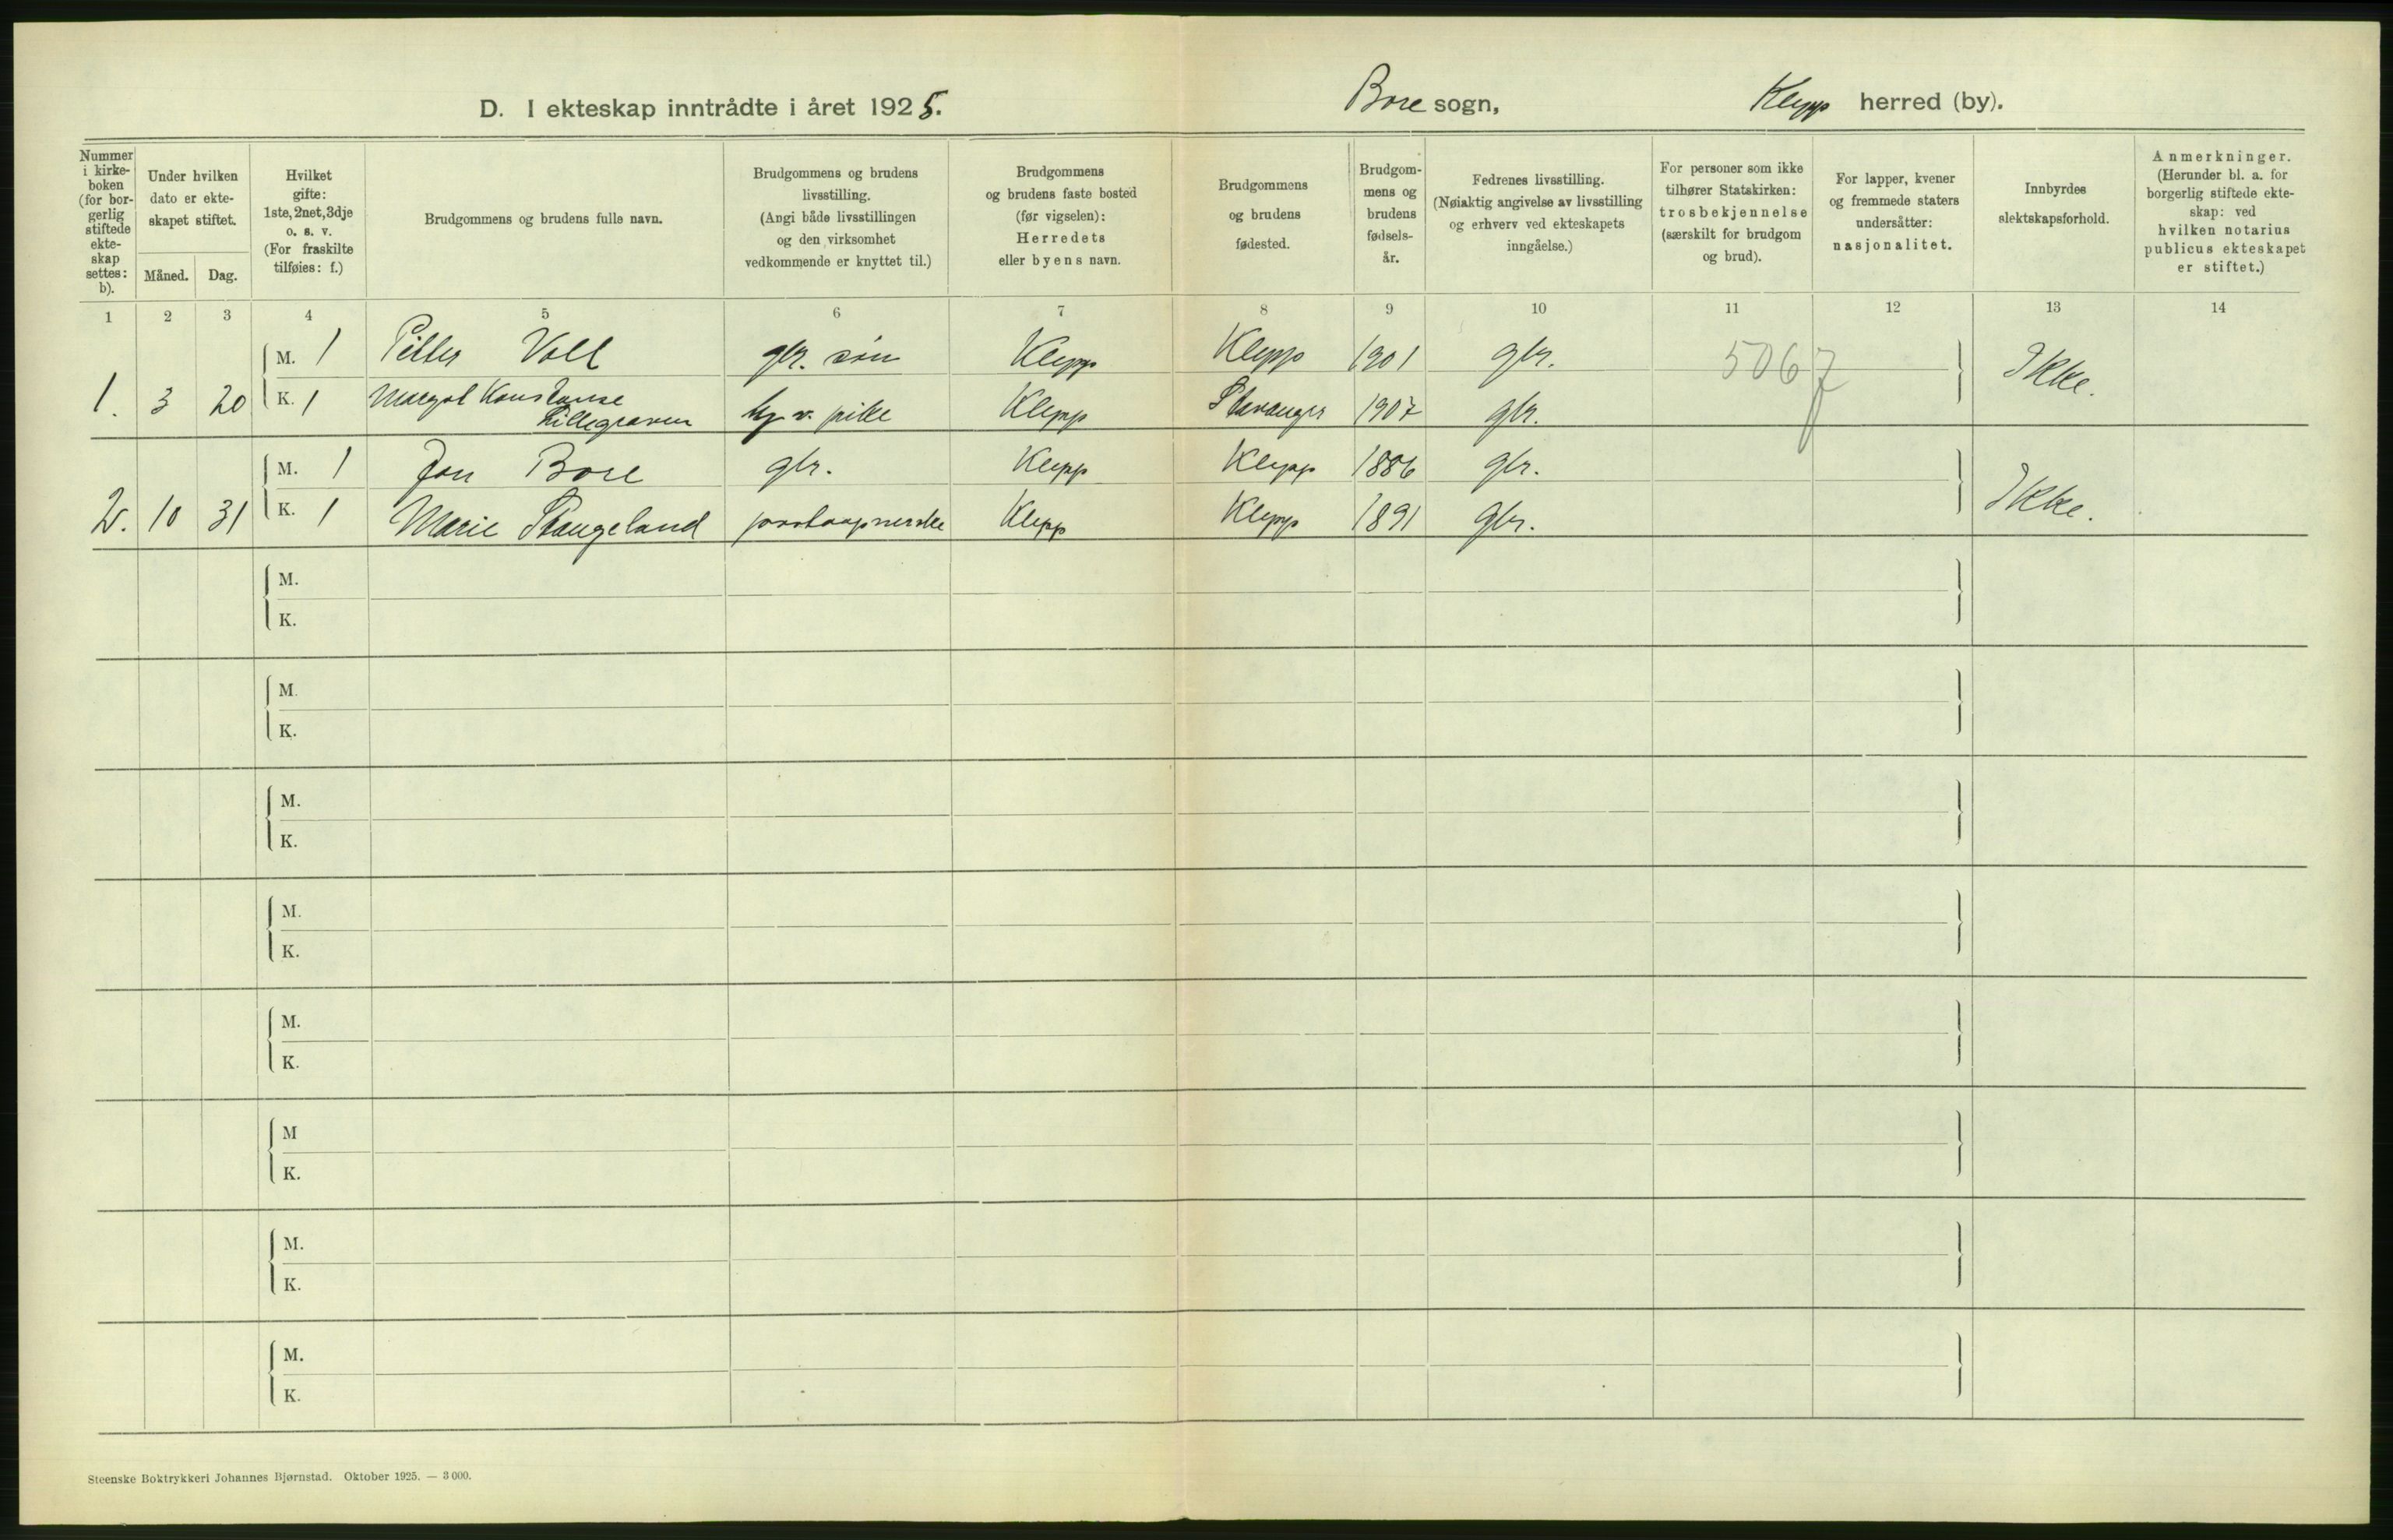 D. I ekteskap inntrådte i året 1925. Bore sogn, Klepp herred (by).
Nummer i kirke- boken (for bor- gerlig stiftede ekte- skap settes: b).
Under hvilken dato er ekte- skapet stiftet.
Måned. Dag.
Hvilket gifte: 1ste, 2net, 3dje o. s. v. (For fraskilte tilføies: f.)
Brudgommens og brudens fulle navn.
Brudgommens og brudens livsstilling. (Angi både livsstillingen og den virksomhet vedkommende er knyttet til.)
Brudgommens og brudens faste bosted (før vigselen): Herredets eller byens navn.
Brudgommens og brudens fødested.
Brudgom- mens og brudens fødsels- år.
Fedrenes livsstilling. (Nøiaktig angivelse av livsstilling og erhverv ved ekteskapets inngåelse.)
For personer som ikke tilhører Statskirken: trosbekjennelse (særskilt for brudgom og brud).
For lapper, kvener og fremmede staters undersåtter: nasjonalitet.
Innbyrdes slektskapsforhold.
Anmerkninger. (Herunder bl. a. for borgerlig stiftede ekte- skap: ved hvilken notarius publicus ekteskapet er stiftet.)
1 2 3 4 5 6 7 8 9 10 11 12 13 14
M. 1 Petter Voll gbr. søn Klepp Klepp 1901 gbr. 5067 Ikke.
1. 3 20 K. 1 Margot Konstanse
Lillegraven pike Klepp Stavanger 1907 gbr.
M. 1 Jon Bore gbr. Klepp Klepp 1886 gbr. Ikke.
2. 10 31 K. 1 Marie Stangeland postaapnerske Klepp Klepp 1891 gbr.
M.
K.
M.
K.
M.
K.
M.
K.
M.
K.
M
K.
M.
K.
M.
K.
Steenske Boktrykkeri Johannes Bjørnstad. Oktober 1925. — 3 000.